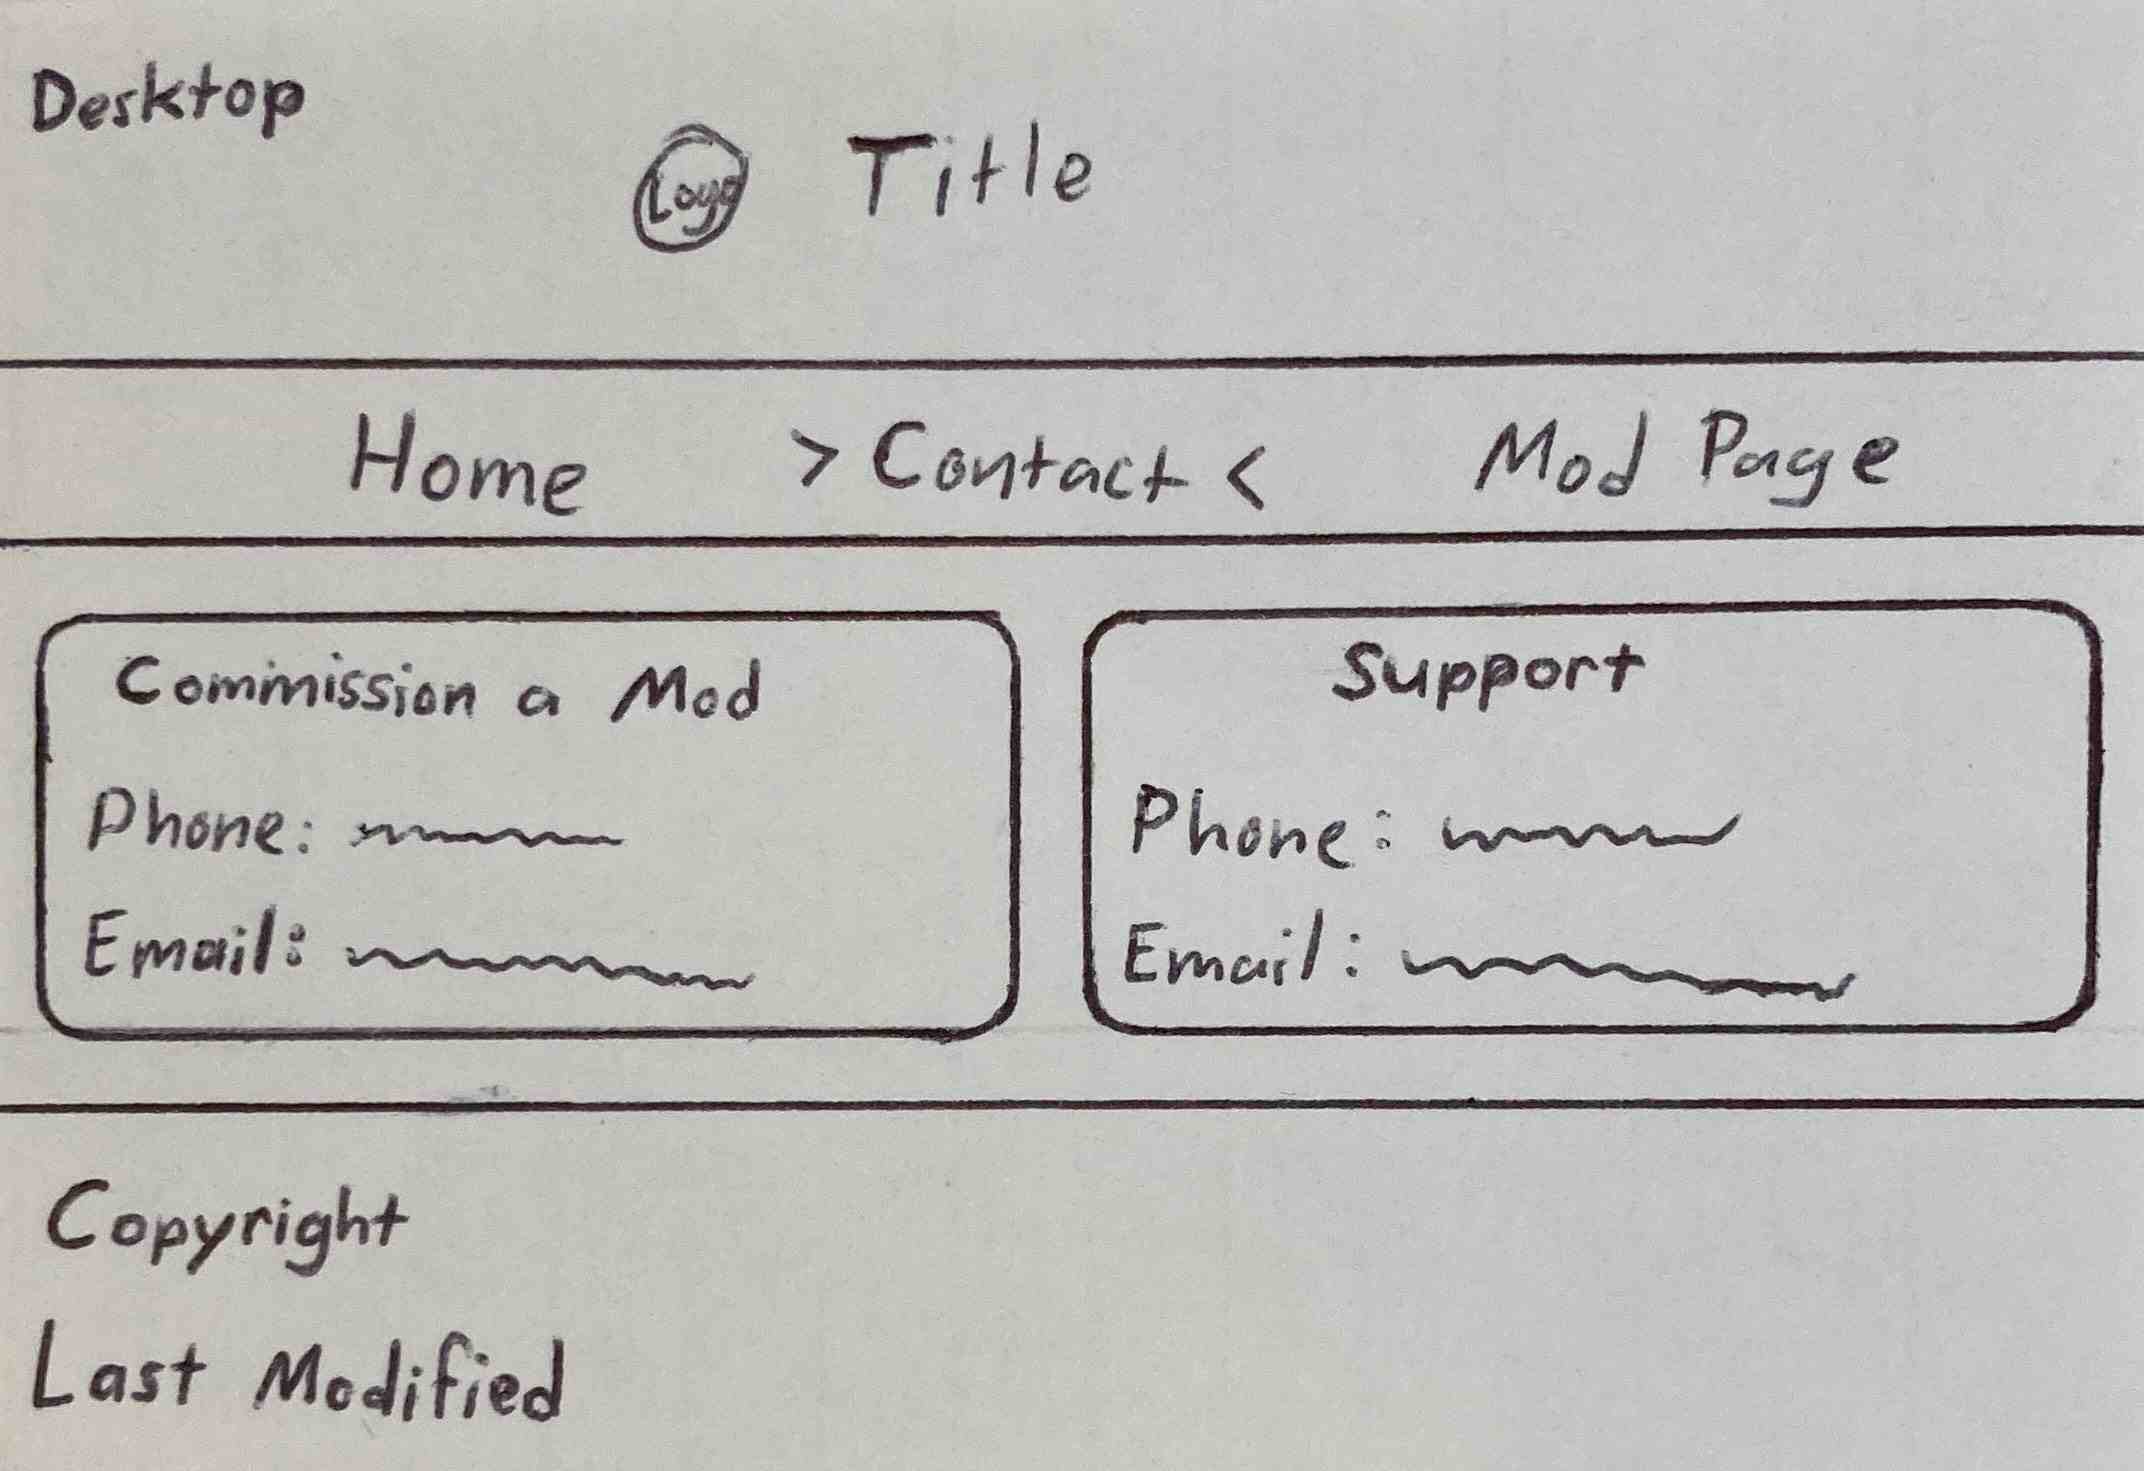 Desktop
Logo Title
Home > Contact < Mod Page
Commission a Mod
Phone:
Email:
Support
Phone:
Email:
Copyright
Last Modified